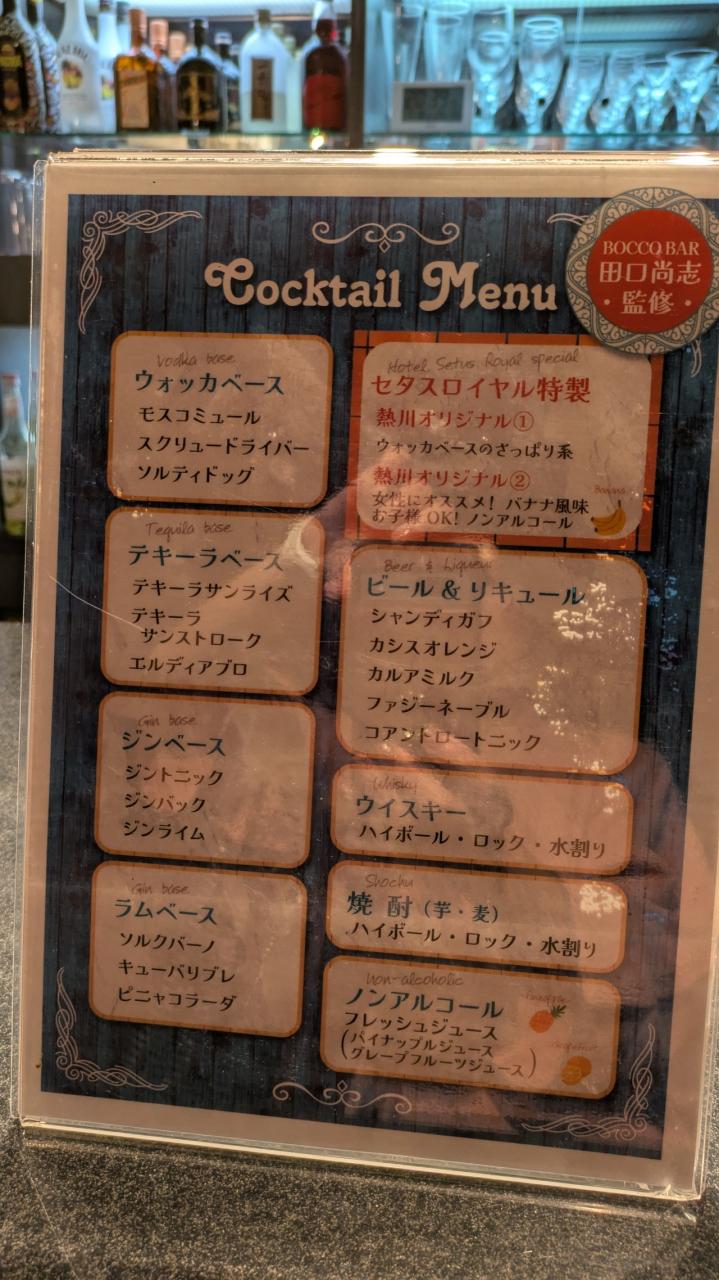 Cocktail Menu
BOCCO BAR
田口尚志
・監修・
Vodka base
ウォッカベース
モスコミュール
スクリュードライバー
ソルティドッグ
Tequila base
テキーラベース
テキーラサンライズ
テキーラ
サンストローク
エルディアブロ
Gin base
ジンベース
ジントニック
ジンバック
ジンライム
Gin base
ラムベース
ソルクバーノ
キューバリブレ
ピニャコラーダ
Hotel Setus Royal special
セタスロイヤル特製
熱川オリジナル①
ウォッカベースのさっぱり系
熱川オリジナル②
女性にオススメ! バナナ風味
お子様 OK! ノンアルコール
Banana
Beer & Liqueur
ビール & リキュール
シャンディガフ
カシスオレンジ
カルアミルク
ファジーネーブル
コアントロートニック
Whisky
ウイスキー
ハイボール・ロック・水割り
Shochu
焼 酎 (芋・麦)
ハイボール・ロック・水割り
non-alcoholic
ノンアルコール
フレッシュジュース
(パイナップルジュース
グレープフルーツジュース)
Pineapple
Grapefruit